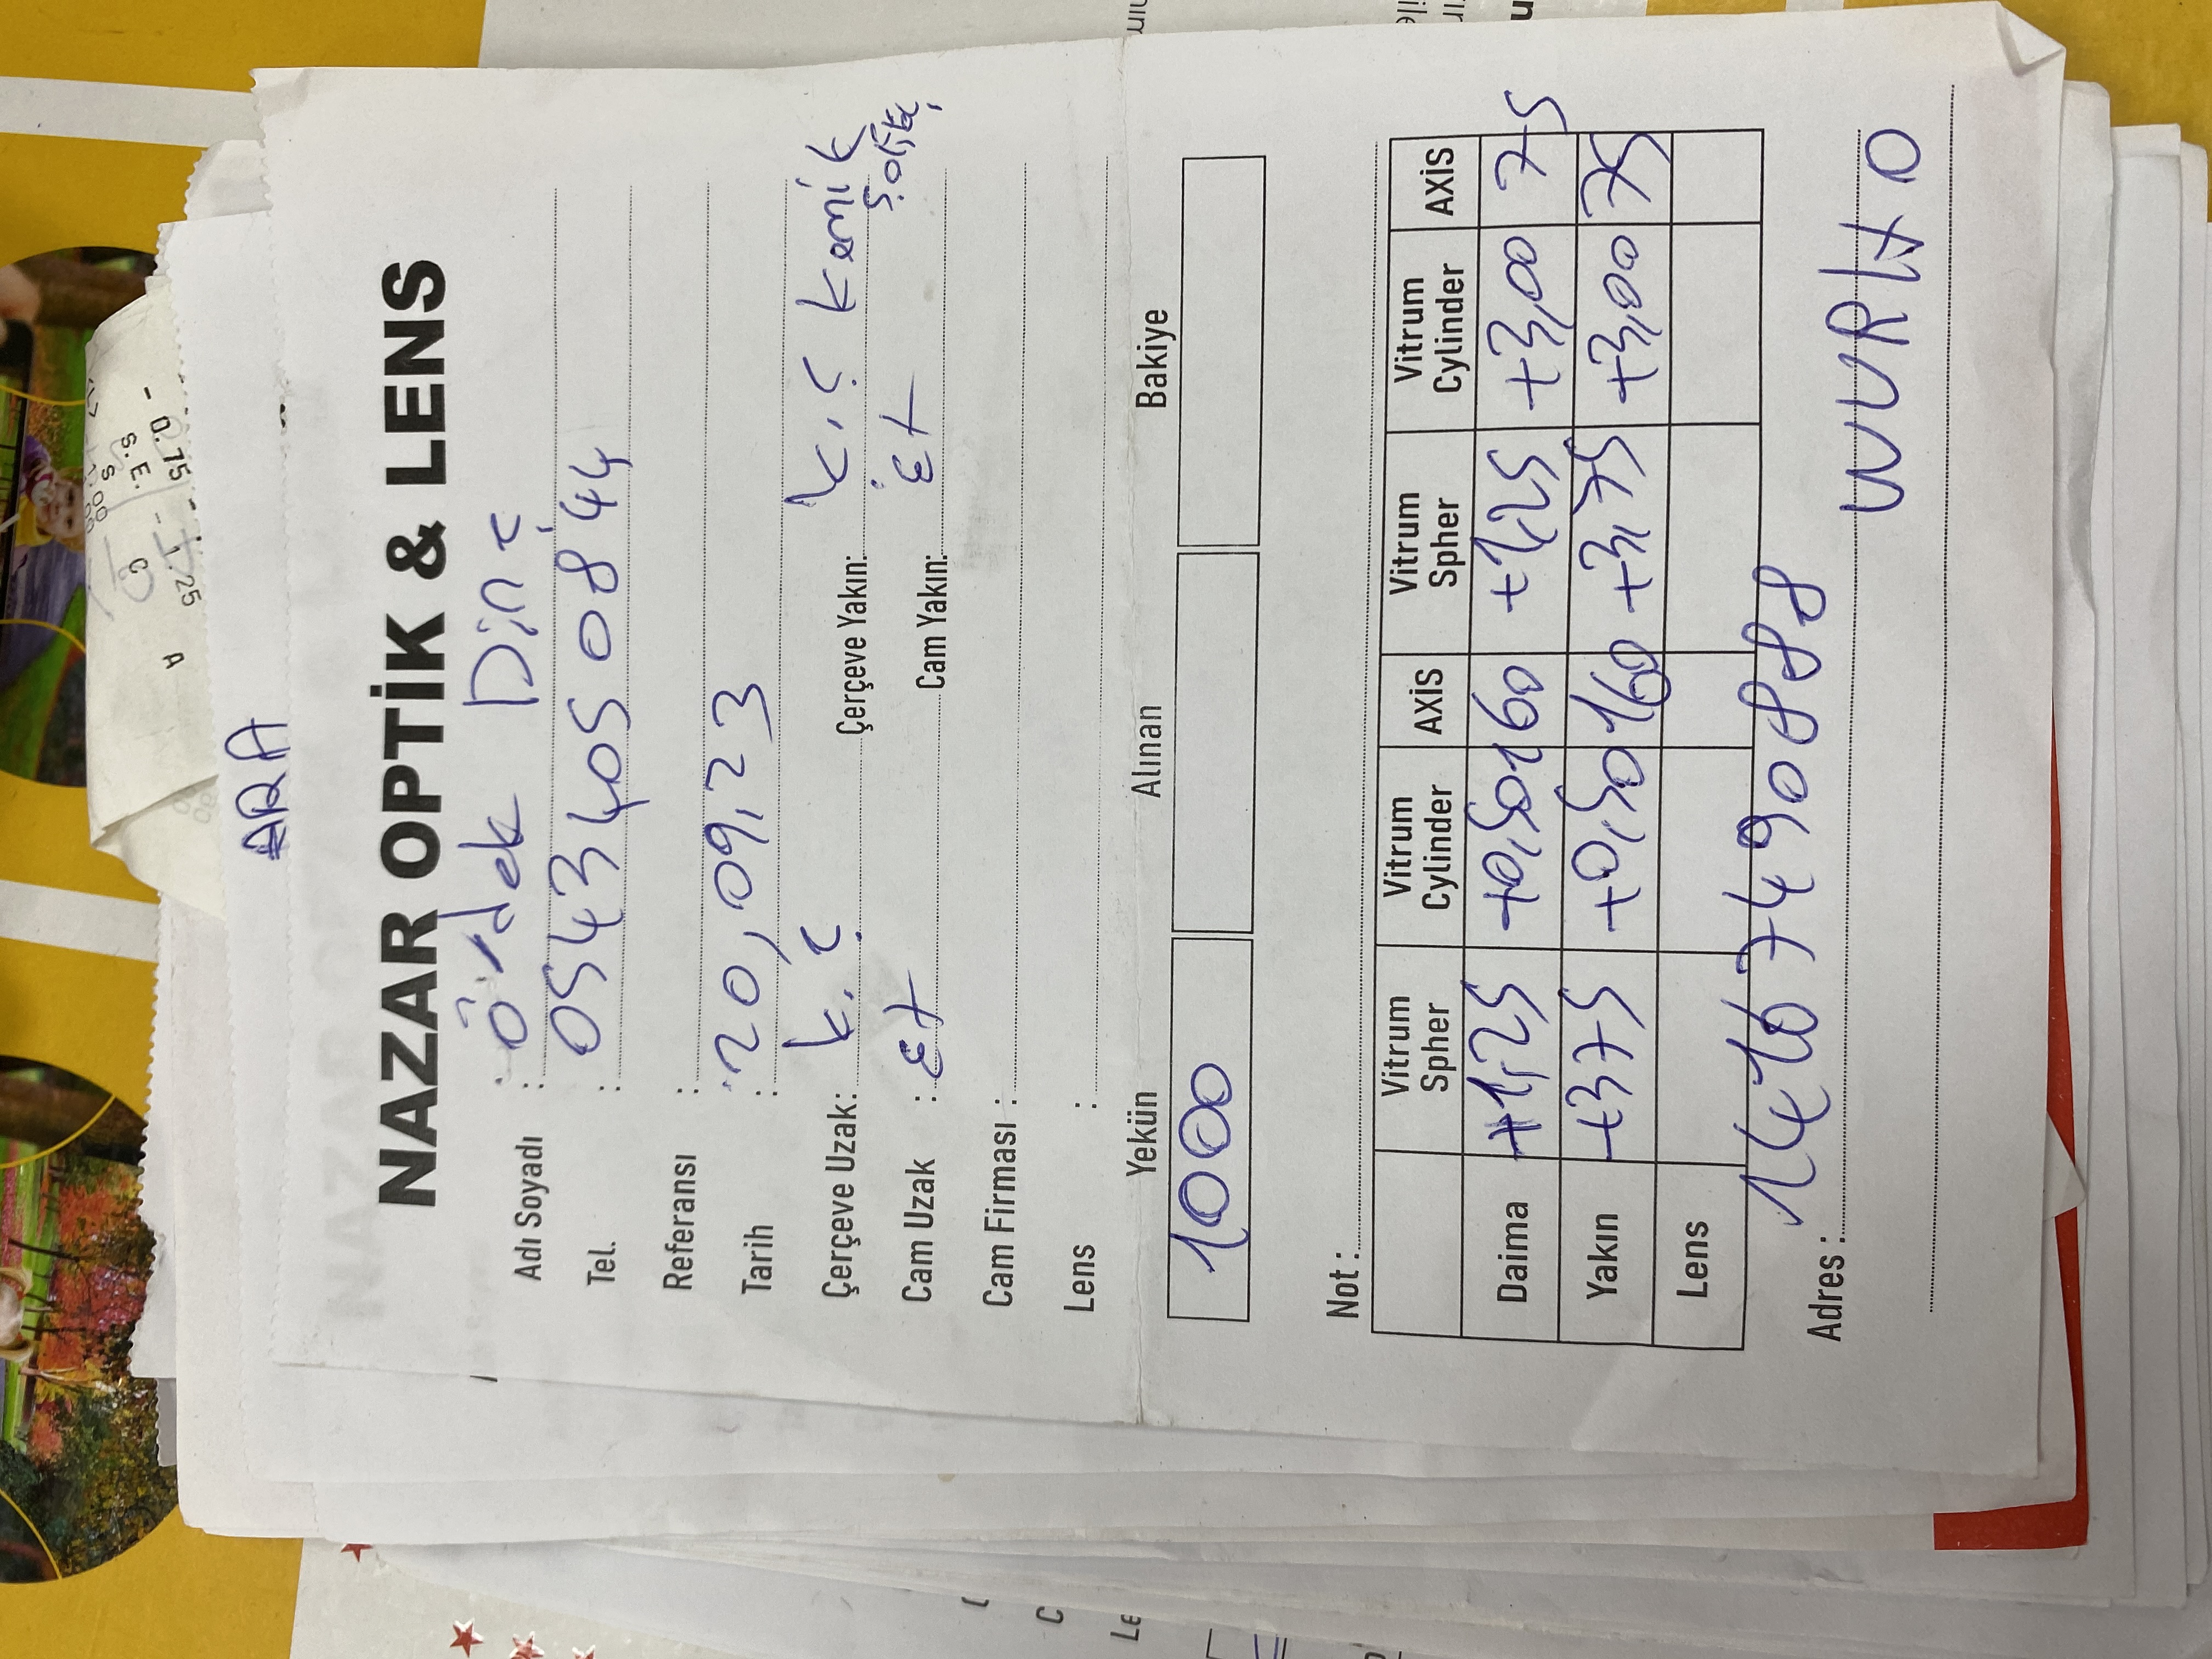 ARA
NAZAR OPTİK & LENS
Adı Soyadı : Ördek Dinç
Tel. : 0543 405 08 44
Referansı :
Tarih : 20,09,23
Çerçeve Uzak: k.ç Çerçeve Yakın: k.ç kemik
Cam Uzak : Et Cam Yakın: Et
Cam Firması :
Lens :
Yekün Alınan Bakiye
1000
Not :
Vitrum Spher Vitrum Cylinder AXİS Vitrum Spher Vitrum Cylinder AXİS
Daima +1,25 +0,50 160 +1,25 +3,00 75
Yakın +375 +0,50 160 +3,75 +3,00 75
Lens
14167490888
Adres :
- 0.75 - 1.25
S.E.
S C A